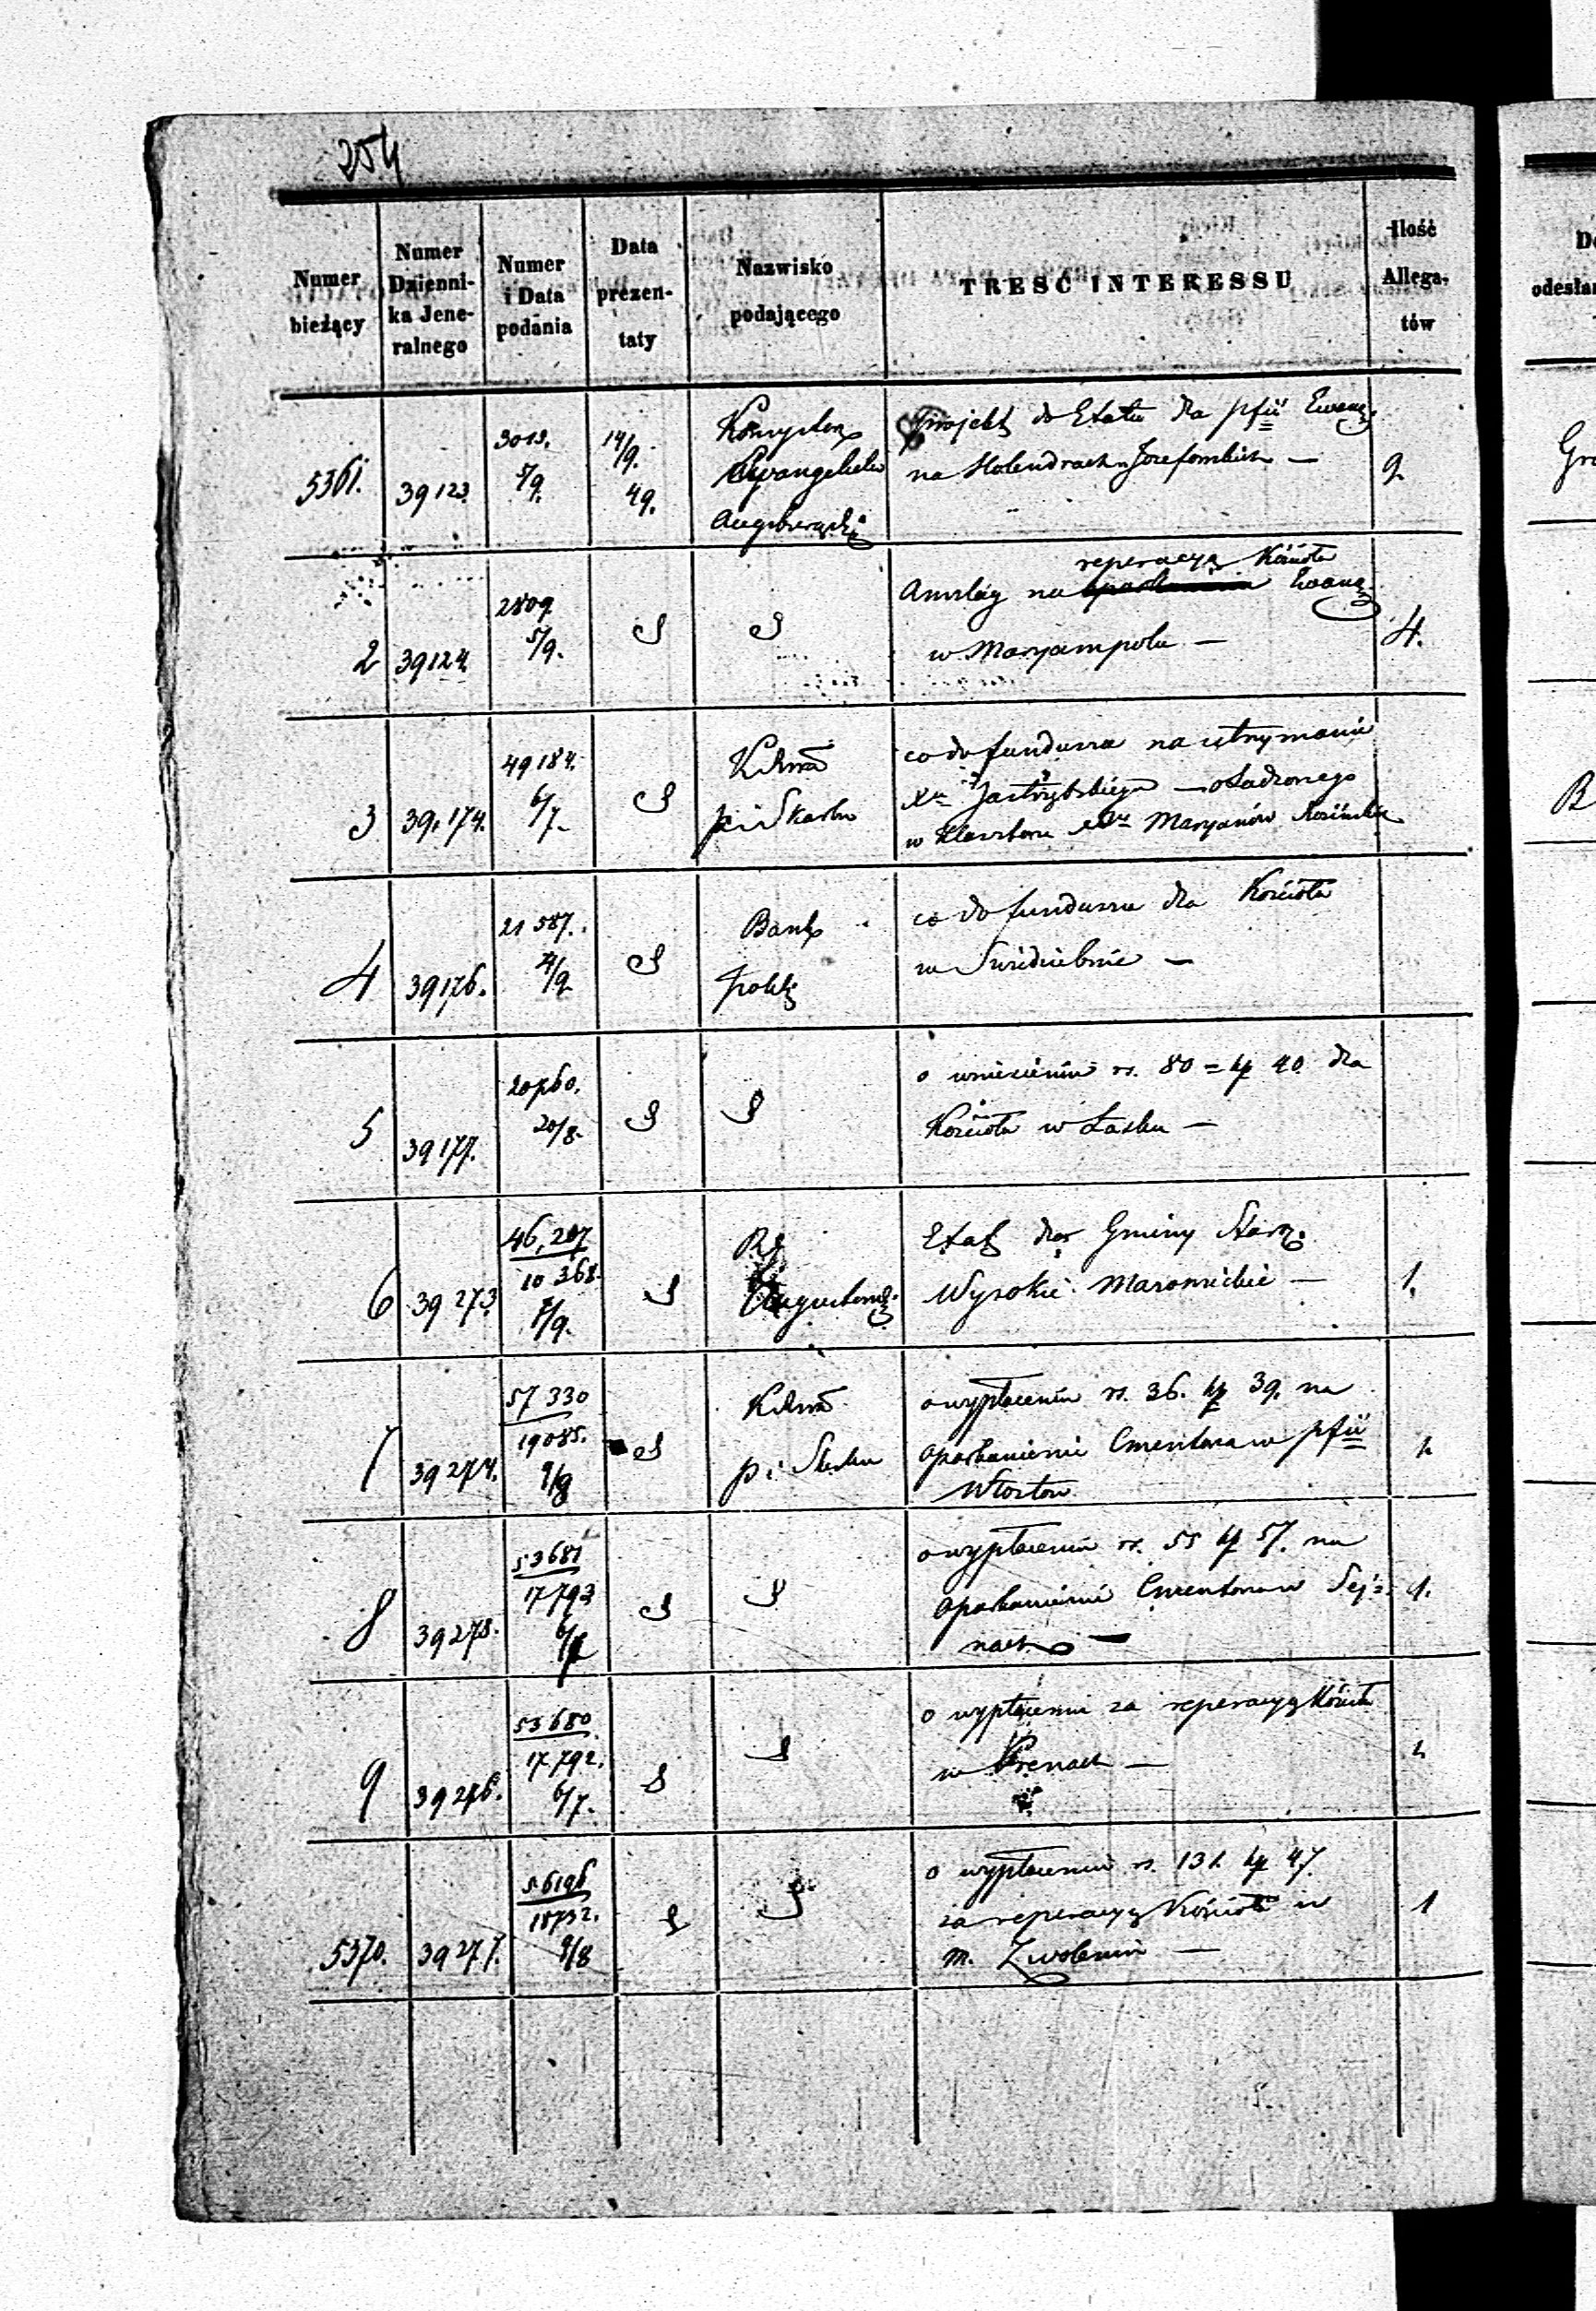 254
Numer bieżący | Numer Dziennika Jeneralnego | Numer i Data podania | Data prezentaty | Nazwisko podającego | TREŚĆ INTERESSU | Ilość Allegatów
5361. | 39123 | 3013. 5/9. | 14/9. 49. | Konsystorz Ewangelicko Augsburgski | Projekt do Etatu dla pfii Ewang.
na Holendrach Jozefowskich — | 2
2 | 39124 | 2809 5/9. | S | S | Anszlag na reperacyą Kościoła Ewang
w Maryampolu — | 4.
3 | 39,174. | 49184. 6/7. | S | K Rząd. p i Skarbu | co do funduszu na utrzymanie
Xa Jastrzębskiego — osadzonego
w Klasztorze XXy Maryanów
4 | 39176. | 21587. 4/9 | S | Bank Polski | co do funduszu dla Kościoła
w Swiedziebnie —
5 | 39177. | 20760. 20/8. | S | S | o wniesieniu rs. 80 = kp 40 dla
Kościoła w Łasku —
6 | 39273 | 46,207 10368. 7/9. | S | RG Augustows. | Etat dla Gminy Star.
Wysokie Mazowieckie — | 1.
7 | 39274. | 57330 19085. 9/8 | S | p i Skarbu | o wypłacenie rs. 36. kp 39. na
oparkanienie Cmentarza w pfii
Włostow | 1
8 | 39275. | 53681 17793 | S | S | o wypłacenie rs. 55 kp 57. na
oparkanienie Cmentarza w Sej-
nach — | 1.
9 | 39276. | 53680 17792. 6/7. | S | S | o wypłacenie za reperacyą Kościoła
w Prenach — | 1
5370. | 39277. | 56196 18732. 9/8 | S | S | o wypłacenie rs. 131. kp 47.
za reperacyą Kościoła w
m. Zwoleniu — | 1
Gro
B